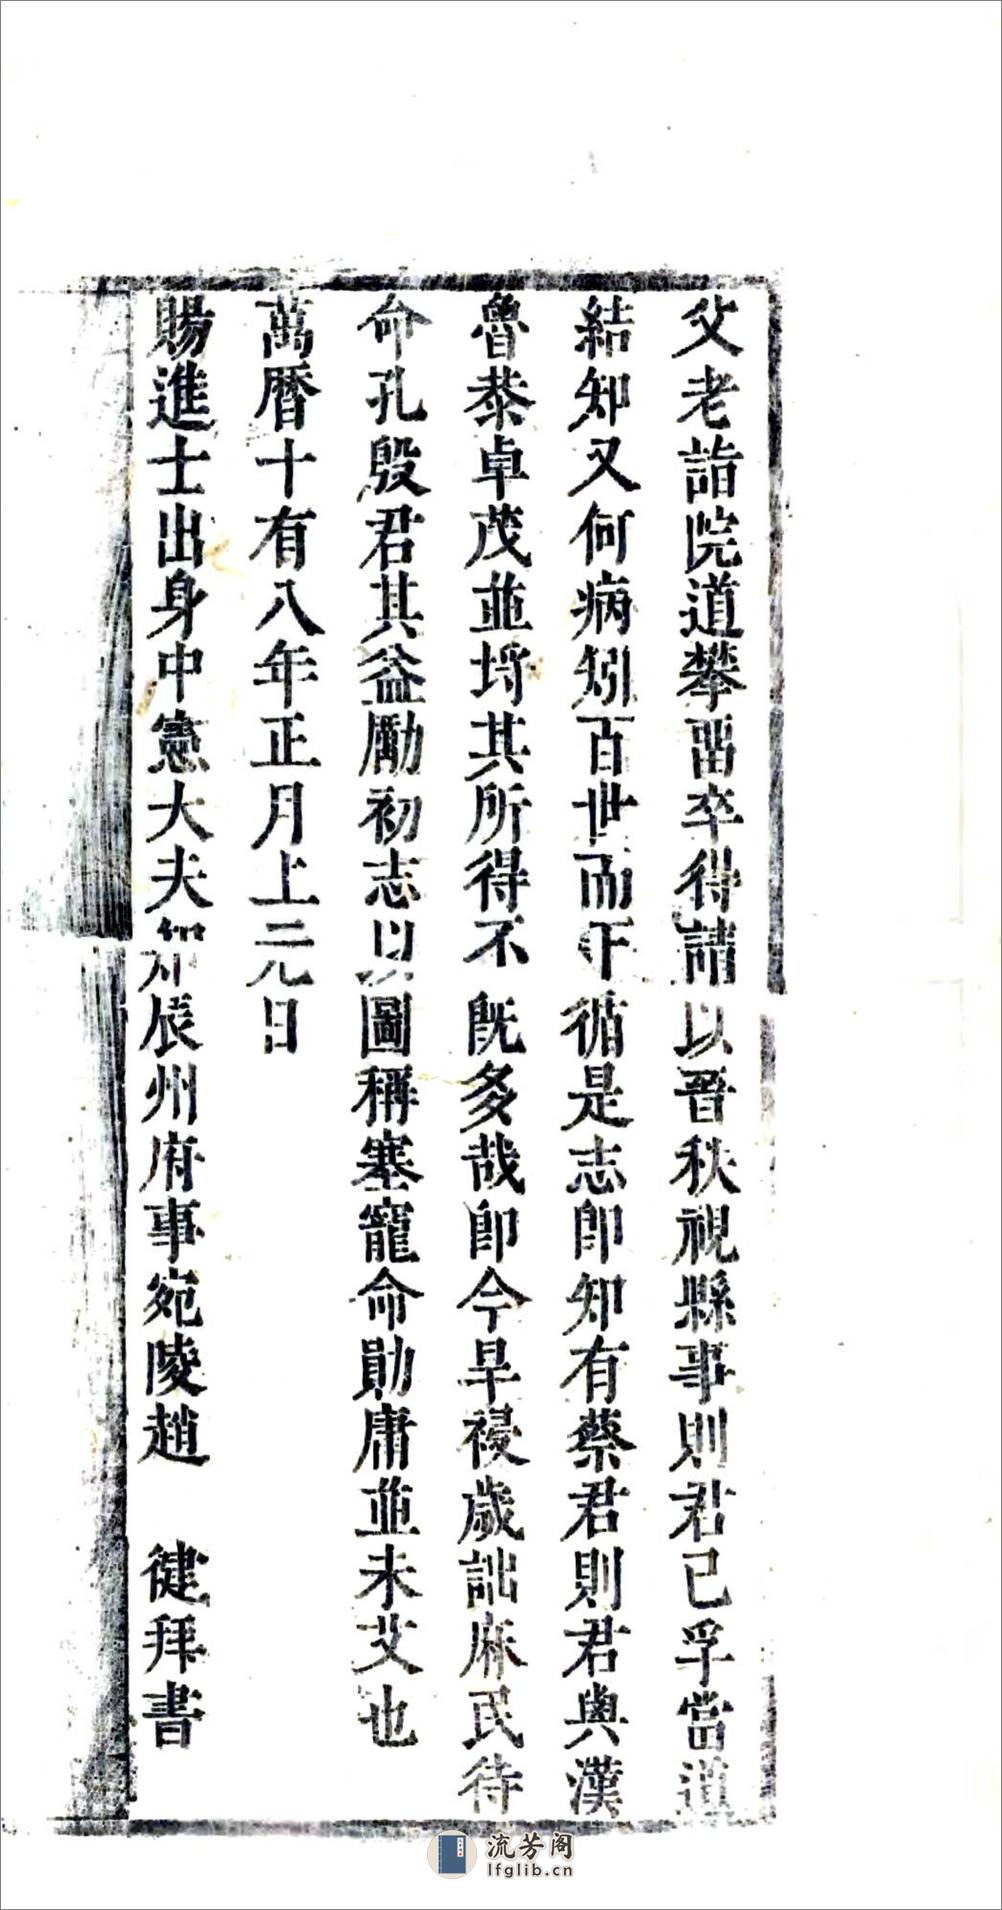 父老詣院道攀留卒得請以晉秩視縣事則君已孚當道
結知又何病矧百世而下循是志卽知有蔡君則君與漢
魯恭卓茂並埒其所得不既多哉卽今旱祲歲詘麻民待
命孔殷君其益勵初志以圖稱塞寵命勛庸並未艾也
萬曆十有八年正月上元日
賜進士出身中憲大夫知辰州府事宛陵趙 健拜書
流芳阁
lfglib.cn